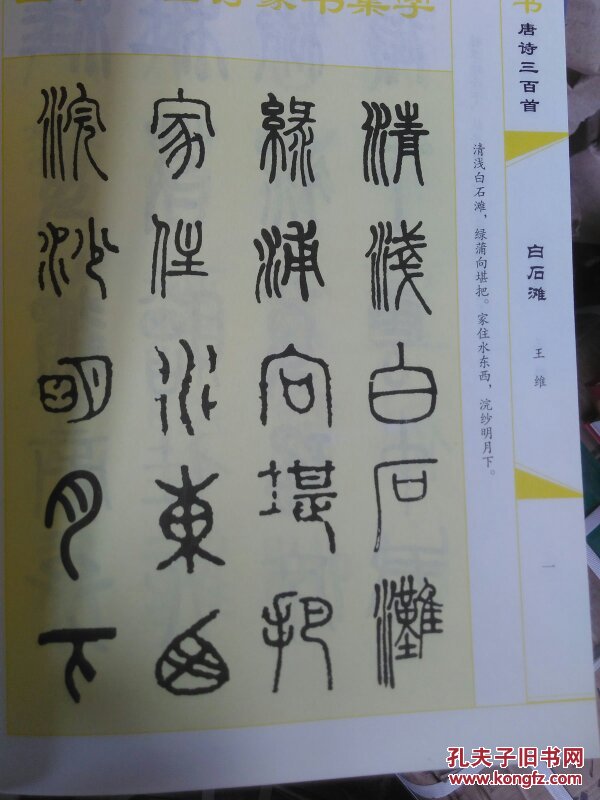 篆书集字
清浅白石滩
绿蒲向堪把
家住水东西
浣沙明月下
清浅白石滩，绿蒲向堪把。家住水东西，浣纱明月下。
书唐诗三百首
白石滩
王维
一
孔夫子旧书网
www.kongfz.com